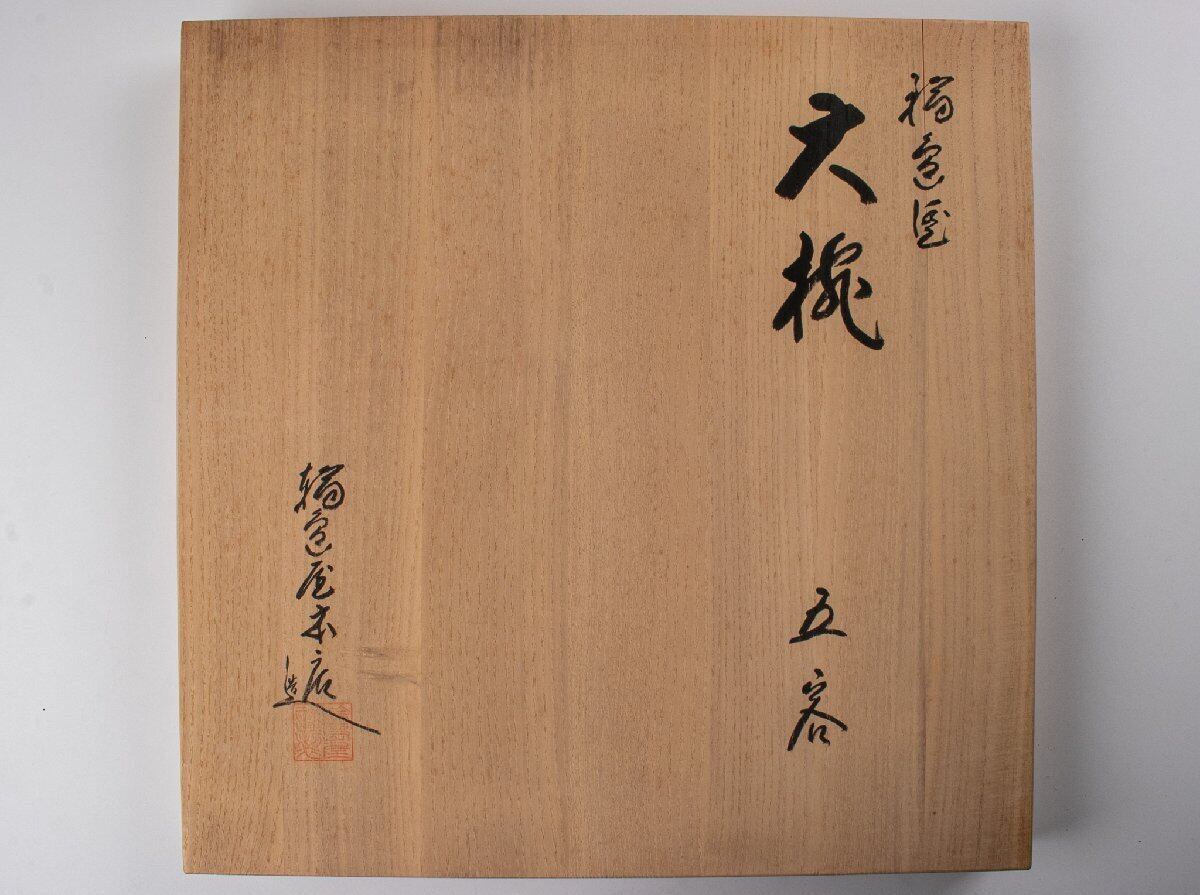 輪島塗
大椀 五客
輪島屋本店
造